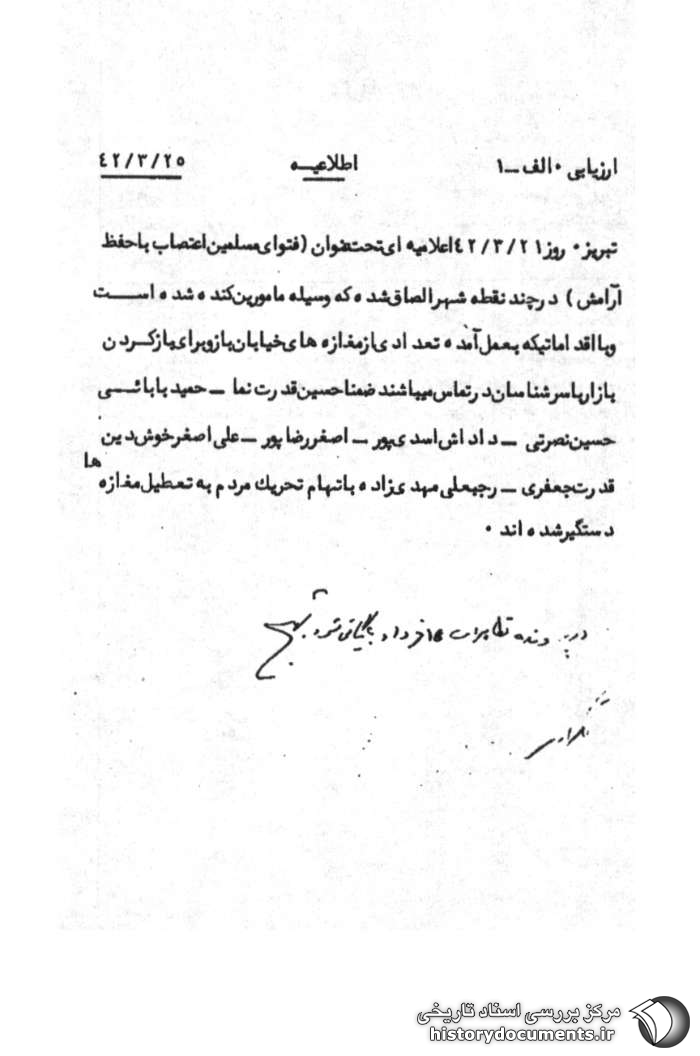 ارزیابی ۰ الف ــ ۱ اطلاعیــه ۴۲/۳/۲۵
تبریز ۰ روز ۴۲/۳/۲۱ اعلامیه ای تحت عنوان (فتوای مسلمین اعتصاب با حفظ
آرامش) در چند نقطه شهر الصاق شده که وسیله مامورین کنده شده اســت
و با اقداماتیکه بعمل آمده تعدادی از مغازه های خیابان باز و برای باز کردن
بازار با سرشناسان در تماس میباشند ضمنا حسین قدرت نما ــ حمید بابائــی
حسین نصرتی ــ داداش اسدی پور ــ اصغر رضا پور ــ علی اصغر خوش دین
قدرت جعفری ــ رجبعلی مهدی زاده باتهام تحریک مردم به تعطیل مغازه ها
دستگیر شده اند ۰
در پرونده تظاهرات ۱۵ خرداد بایگانی شود
مرکز بررسی اسناد تاریخی
historydocuments.ir